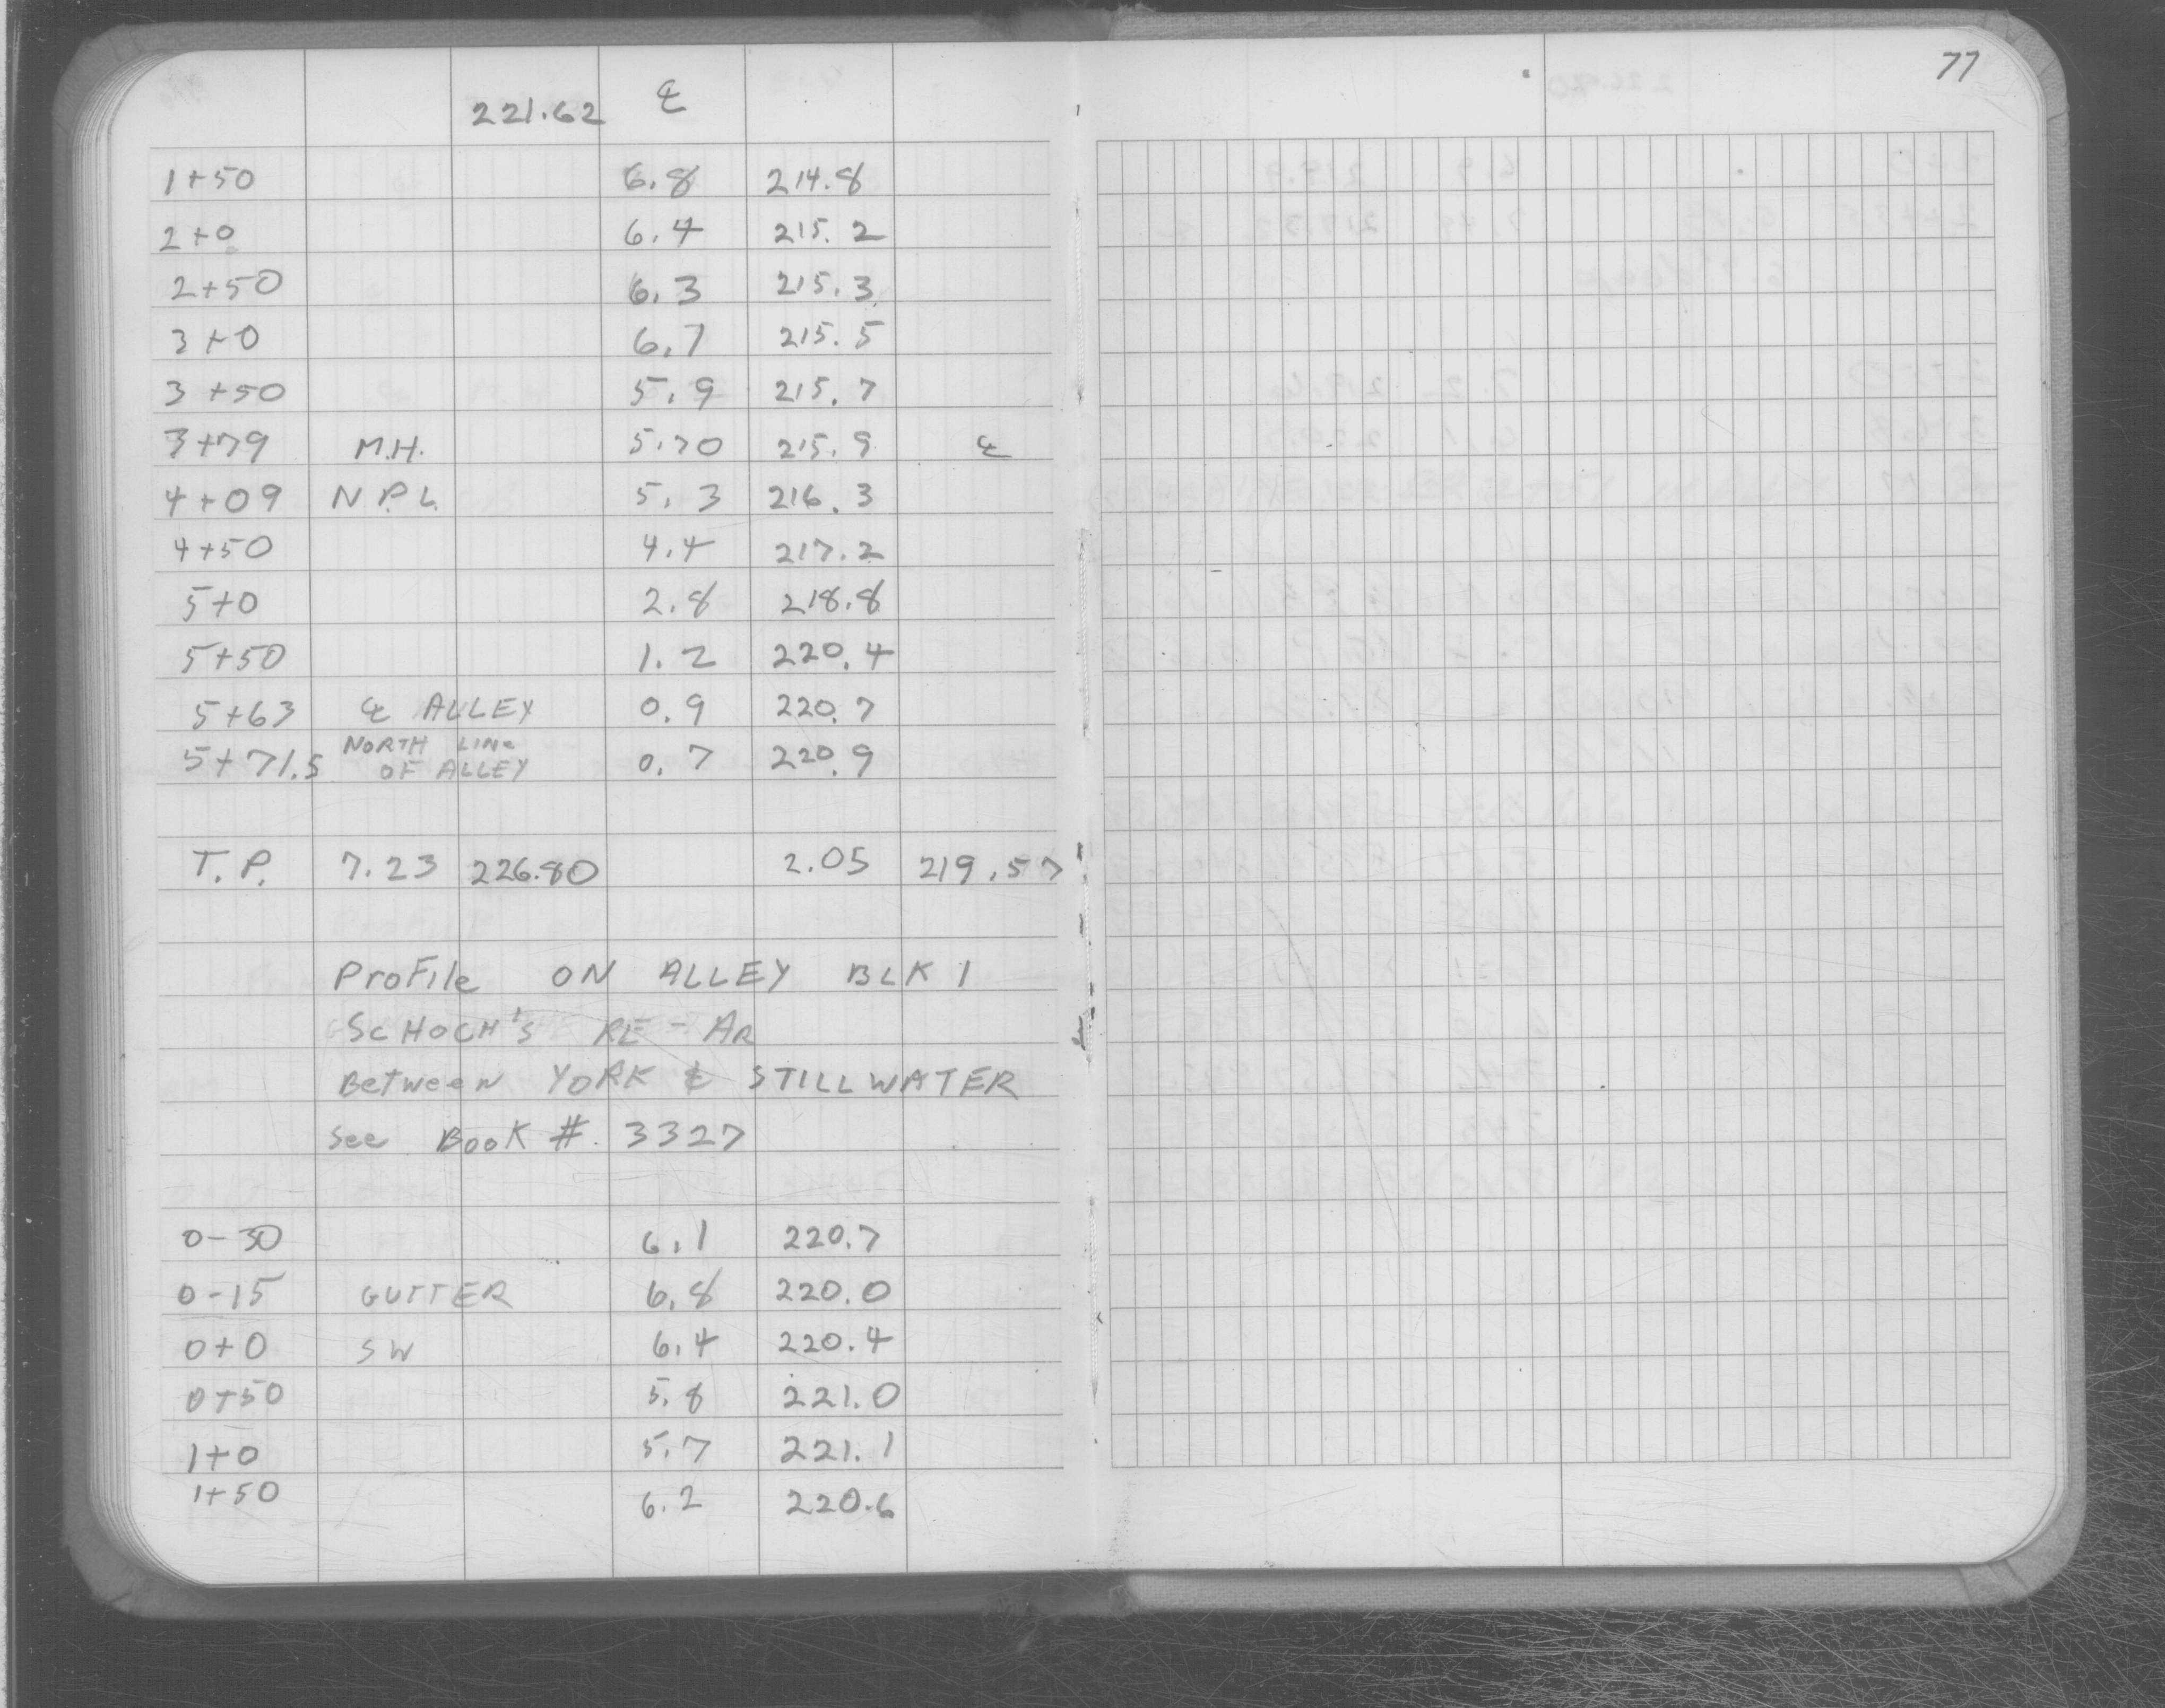 77
221.62 ℄
1+50 6.8 214.8
2+0 6.4 215.2
2+50 6.3 215.3
3+0 6.7 215.5
3+50 5.9 215.7
3+79 M.H. 5.70 215.9 ℄
4+09 N.P.L. 5.3 216.3
4+50 4.4 217.2
5+0 2.8 218.8
5+50 1.2 220.4
5+63 ℄ ALLEY 0.9 220.7
5+71.5 NORTH LINE OF ALLEY 0.7 220.9
T.P. 7.23 226.80 2.05 219.57
ProFile ON ALLEY BLK 1
SCHOCH'S RE-AR
BeTween YORK & STILLWATER
See BOOK # 3327
0-30 6.1 220.7
0-15 GUTTER 6.8 220.0
0+0 SW 6.4 220.4
0+50 5.8 221.0
1+0 5.7 221.1
1+50 6.2 220.6